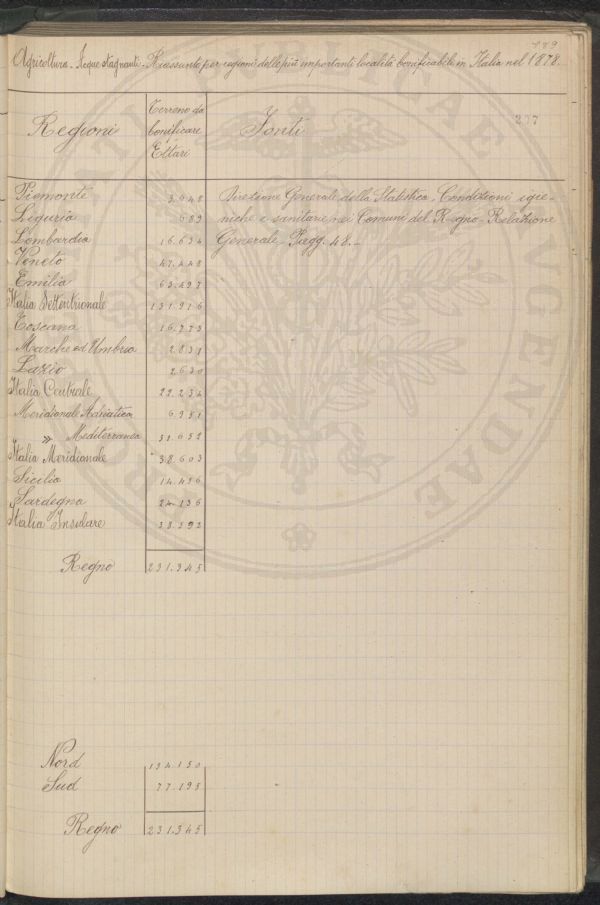 Agricoltura - Acque stagnanti - Riassunto per regioni delle più importanti località bonificabili in Italia nel 1878.
Regioni
Terreno da bonificare Ettari
Fonti
Piemonte 3.648 Direzione Generale della Statistica - Condizioni igie-
Liguria 689 niche e sanitarie nei Comuni del Regno - Relazione
Lombardia 16.634 Generale - Pagg. 48. -
Veneto 47.448
Emilia 63.497
Italia Settentrionale 131.916
Toscana 16.773
Marche ed Umbria 2.831
Lazio 2.630
Italia Centrale 22.234
Meridionale Adriatica 6.951
" Mediterranea 31.652
Italia Meridionale 38.603
Sicilia 14.456
Sardegna 24.136
Italia Insulare 38.592
Regno 231.345
Nord 154.150
Sud 77.195
Regno 231.345